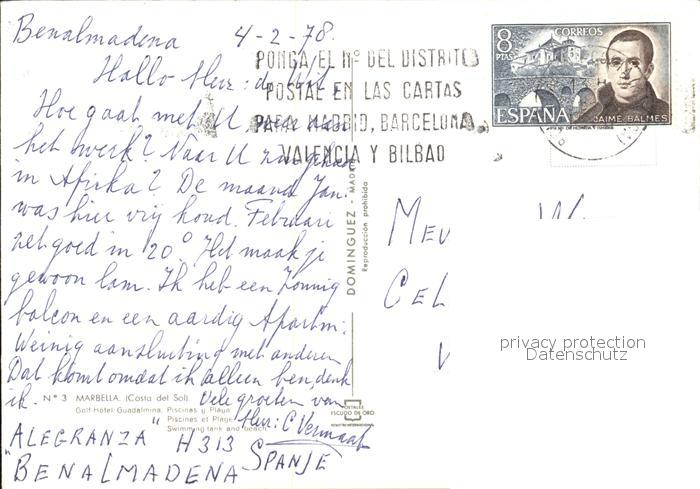 Benalmadena 4-2-78.
Hallo Heer: de Wit,
Hoe gaat met U,
het werk? Naar U
in Afrika? De maand Jan.
was hier vrij koud. Februari
zet goed in 20° Het maak je
gewoon lam. Ik heb een zonnig
balcon en een aardig Apartm:
Weinig aansluiting met anderen
Dat komt omdat ik alleen ben, denk
ik. Vele groeten van
Heer: C Vermaat
"ALEGRANZA" H 313
"BENALMADENA SPANJE
PONGA EL Nº DEL DISTRITO
POSTAL EN LAS CARTAS
PARA MADRID, BARCELONA,
VALENCIA Y BILBAO
8 PTAS
CORREOS
ESPAÑA
JAIME BALMES
DOMINGUEZ - MADRID
Reproducción prohibida
MEV
CEL
V
privacy protection
Datenschutz
Nº 3 MARBELLA. (Costa del Sol).
Golf-Hotel Guadalmina. Piscinas y Playa
" Piscines et Plage
Swimming tank and beach
POSTALES
ESCUDO DE ORO